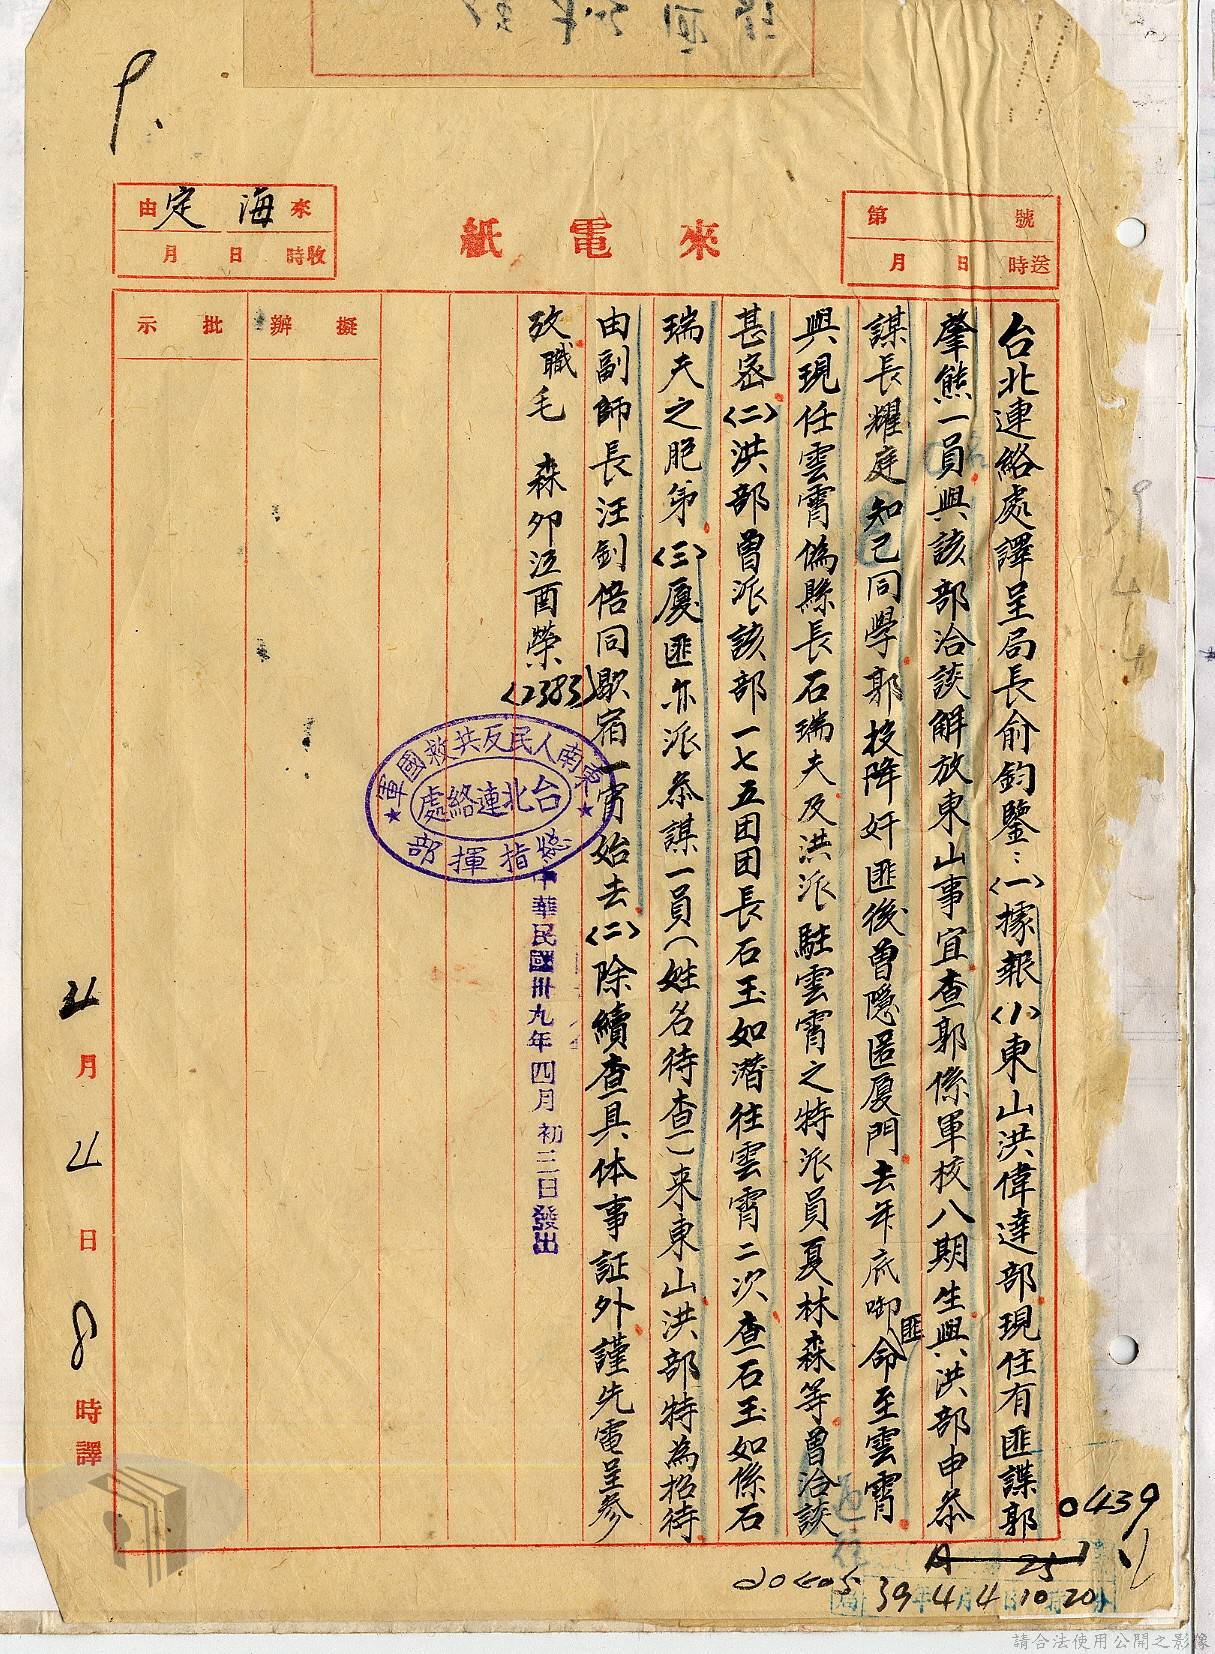 來電紙
第 號
月 日 時送
來 海定 由
月 日 時收
台北連絡處譯呈局長俞鈞鑒:<一>據報<1>東山洪偉達部現住有匪諜郭
肇熊一員與該部洽談解放東山事宜查郭係軍校八期生與洪部申叅
謀長耀庭知己同學郭投降奸匪後曾隱匿厦門去年底啣匪命至雲霄
與現任雲霄偽縣長石瑞夫及洪派駐雲霄之特派員夏林森等曾洽談
甚密<二>洪部曾派該部一七五团团長石玉如潛往雲霄二次查石玉如係石
瑞夫之胞弟<三>厦匪亦派叅謀一員(姓名待查)来東山洪部特為招待
由副師長汪釗倍同歇宿一宵始去<二>除續查具体事証外謹先電呈參
攷職毛 森卯江酉榮(2383)
擬辦
批示
東南人民反共救國軍
總指揮部
台北連絡處
中華民國卅九年四月初三日發出
4月4日8時譯
0439
39年4月4日10時20分
39
4
4
請合法使用公開之影像